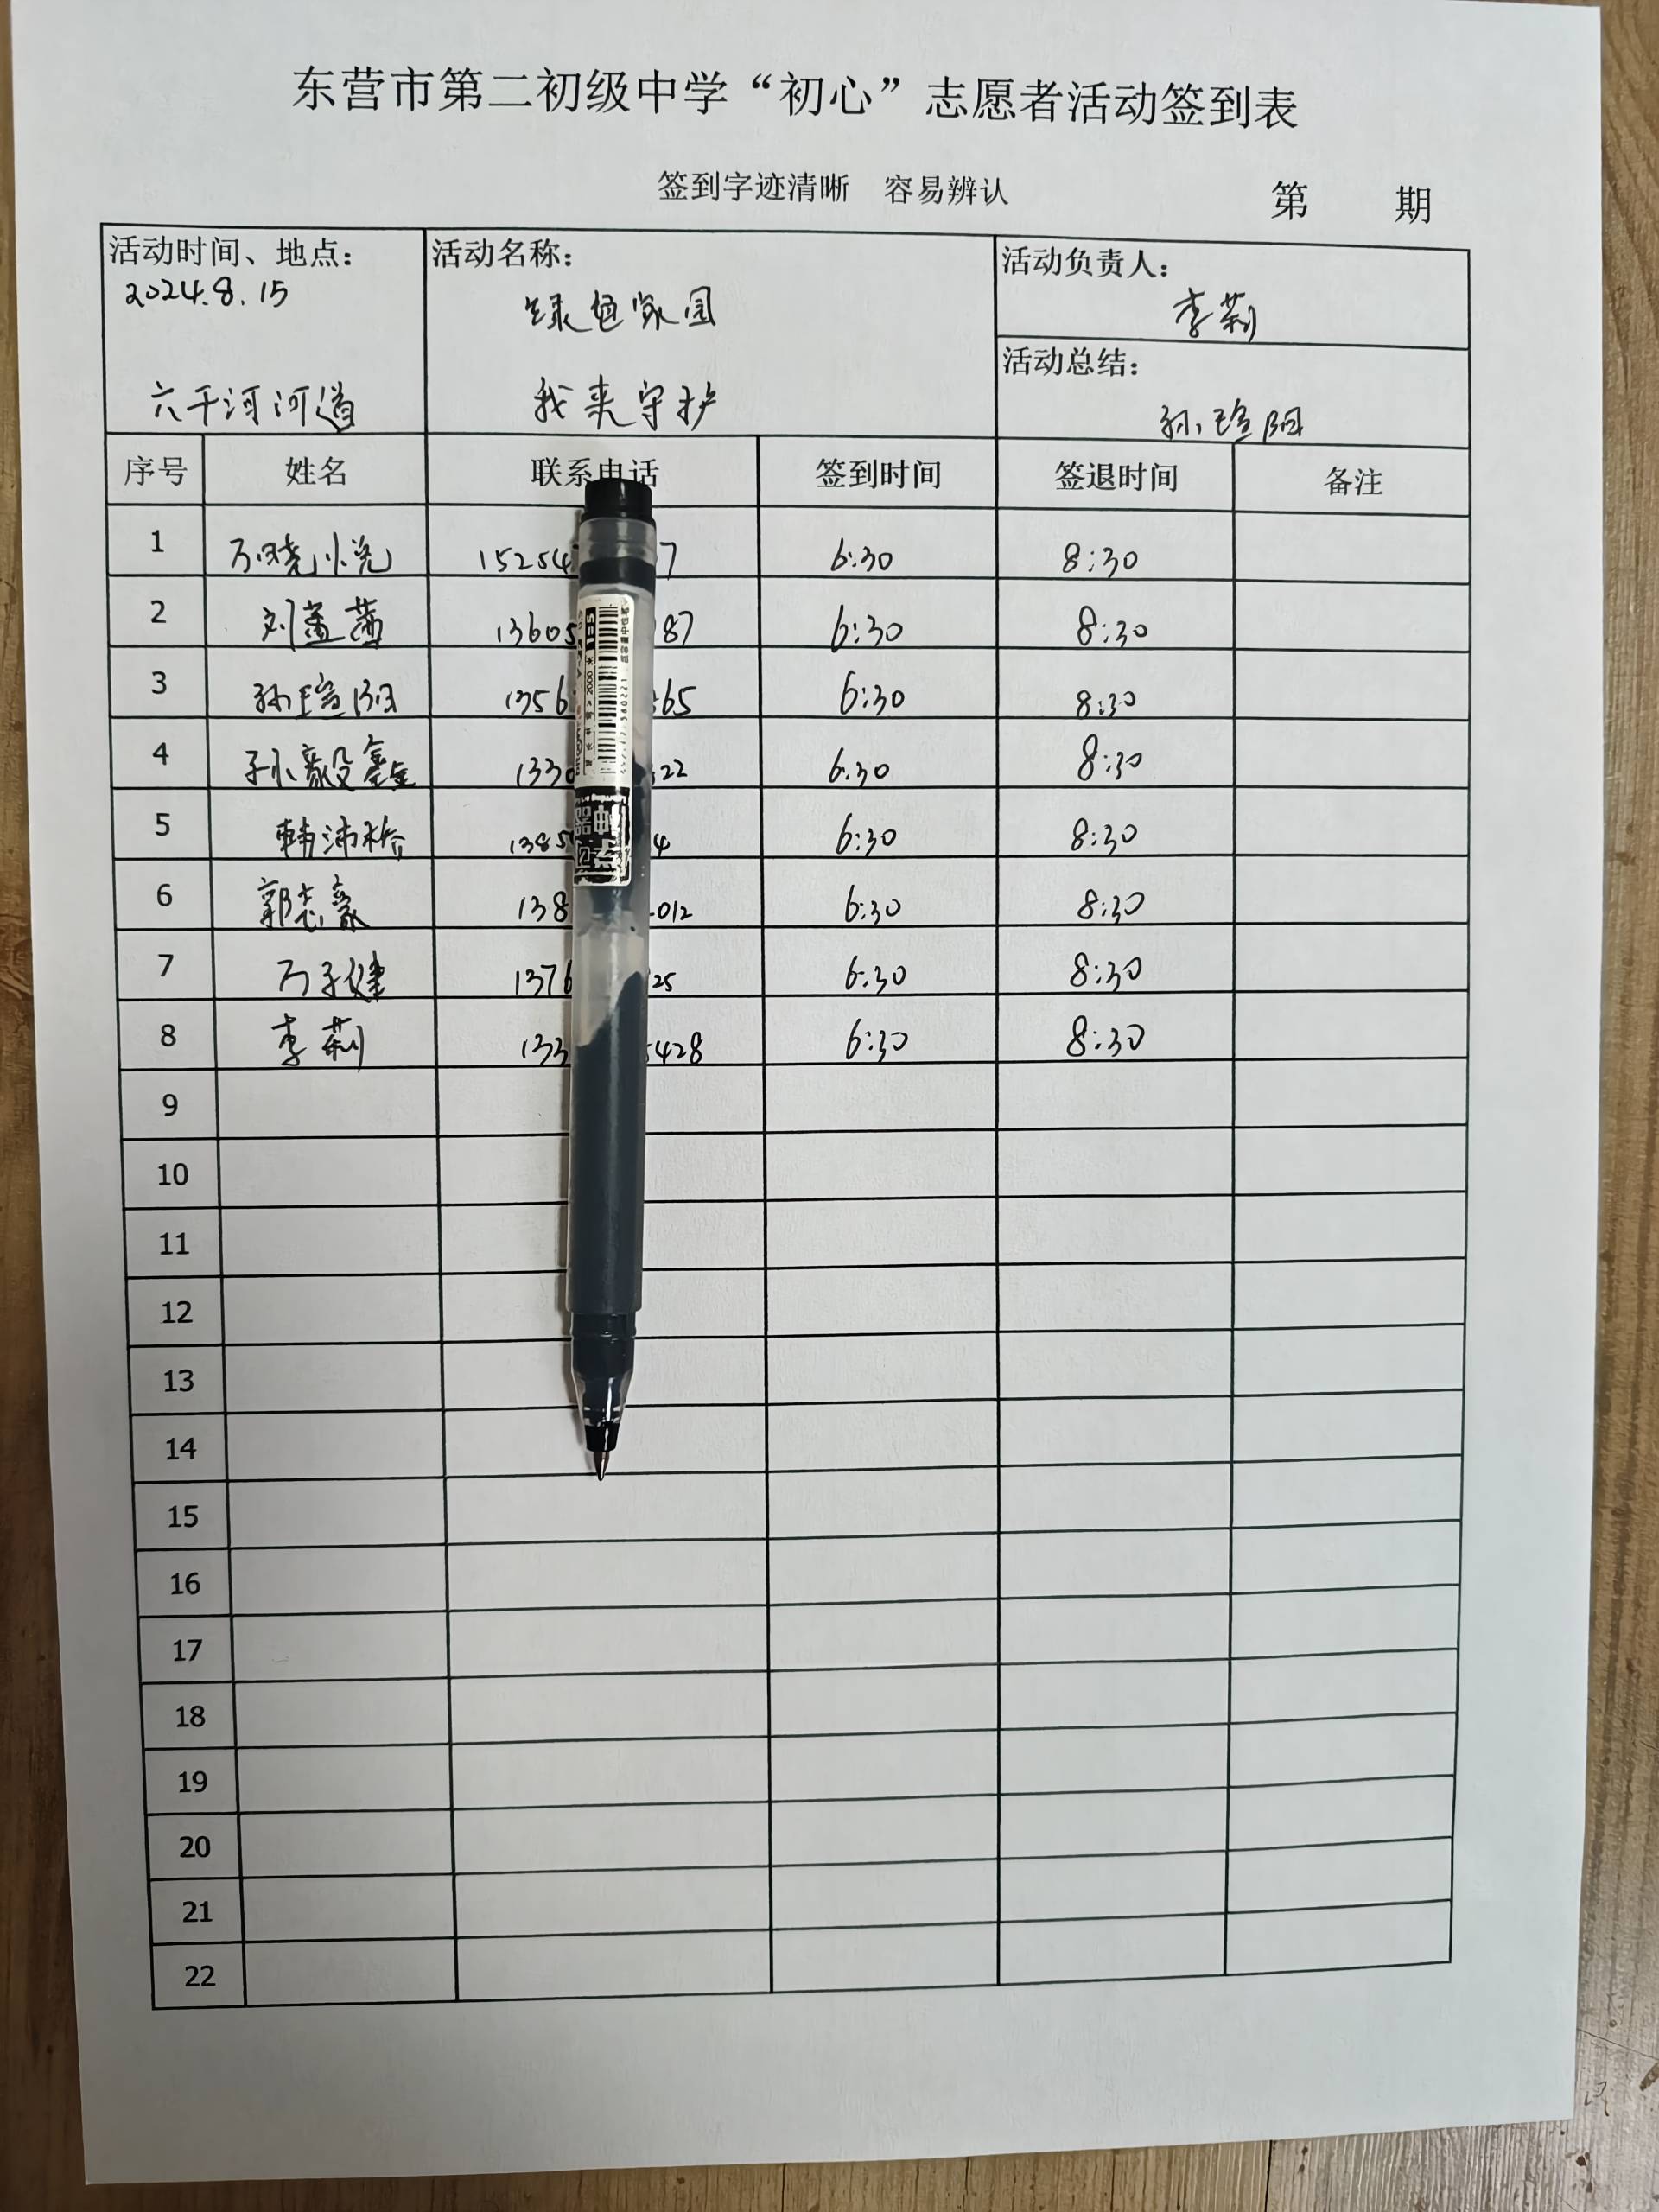 东营市第二初级中学“初心”志愿者活动签到表
签到字迹清晰 容易辨认 第 期
活动时间、地点： 活动名称： 活动负责人：
2024.8.15 绿色家园 李莉
活动总结：
六干河河道 我来守护 孙瑄阳
序号 姓名 联系电话 签到时间 签退时间 备注
1 万晓 152547 7 6:30 8:30
2 刘 13605 87 6:30 8:30
3 孙瑄阳 1356 65 6:30 8:30
4 孙毅鑫 1330 22 6:30 8:30
5 韩沛桥 1385 4 6:30 8:30
6 郭志豪 138 012 6:30 8:30
7 万子健 1376 25 6:30 8:30
8 李莉 133 5428 6:30 8:30
9
10
11
12
13
14
15
16
17
18
19
20
21
22